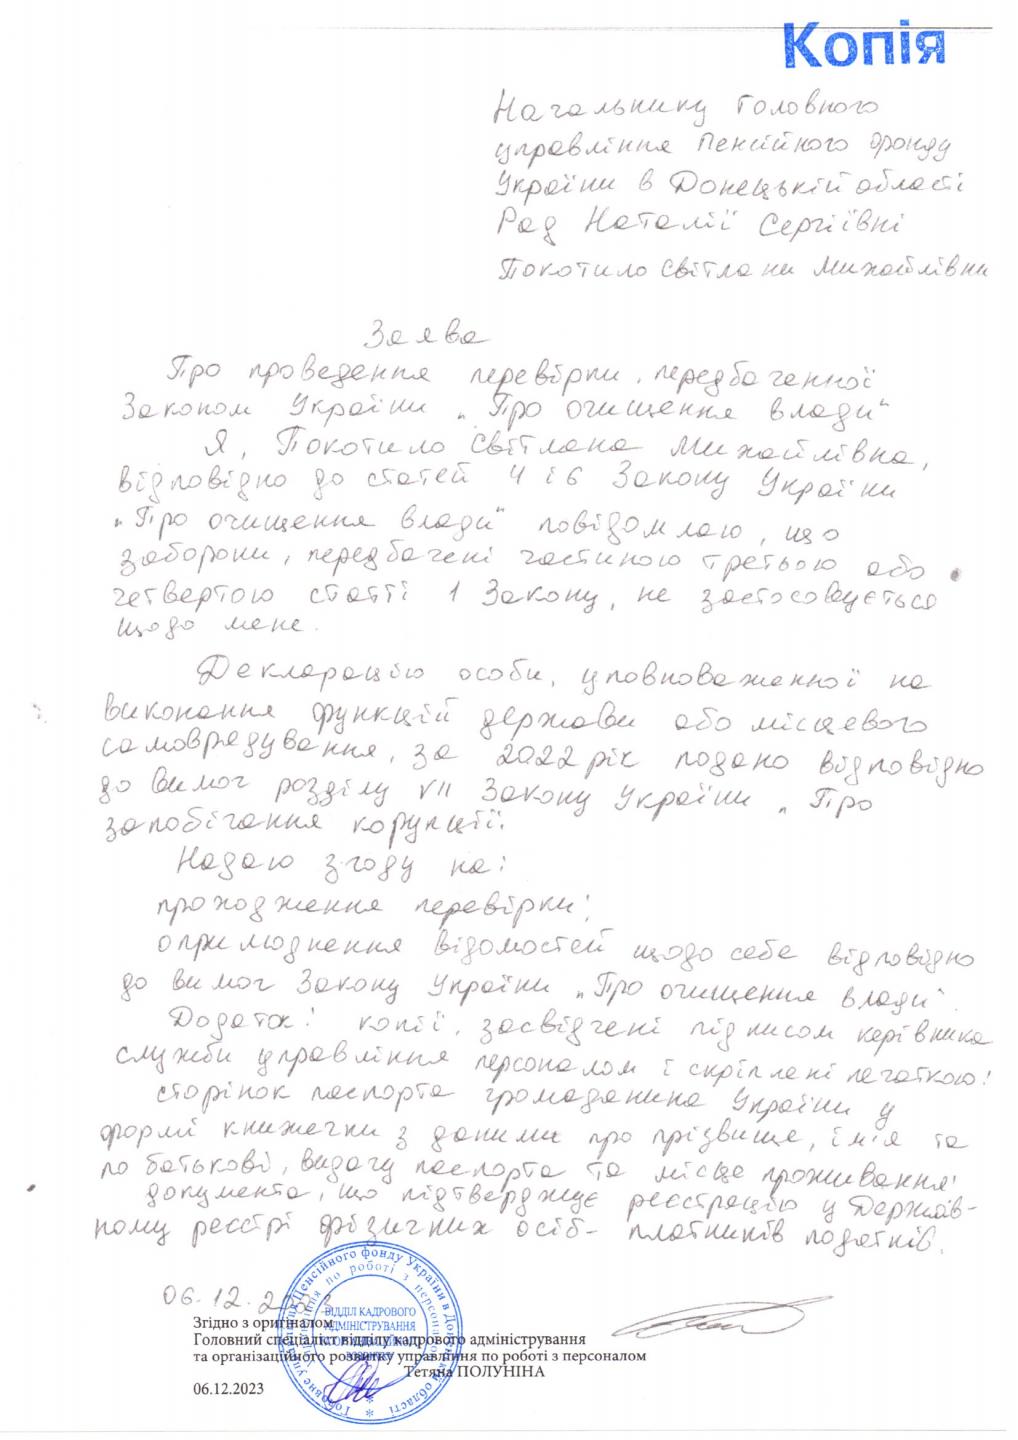 Копія
Начальнику Головного
управління Пенсійного фонду
України в Донецькій області
Рад Наталії Сергіївні
Покотило Світлани Михайлівни
Заява
Про проведення перевірки, передбаченної
Законом України „Про очищення влади“
Я, Покотило Світлана Михайлівна,
відповідно до статей 4 і 6 Закону України
„Про очищення влади“ повідомляю, що
заборони, передбачені частиною третьою або
четвертою статті 1 Закону, не застосовується
щодо мене.
Декларацію особи, уповноваженної на
виконання функцій держави або місцевого
самоврядування, за 2022 рік подано відповідно
до вимог розділу VII Закону України „Про
запобігання корупції.
Надаю згоду на:
проходження перевірки;
оприлюднення відомостей щодо себе відповідно
до вимог Закону України „Про очищення влади“.
Додаток: копії, засвідчені підписом керівника
служби управління персоналом і скріплені печаткою:
сторінок паспорта громадянина України у
формі книжечки з даними про прізвище, ім'я та
по батькові, видачу паспорта та місце проживання;
документа, що підтверджує реєстрацію у Держав-
ному реєстрі фізичних осіб- платників податків.
06.12.2023
Згідно з оригіналом
Головний спеціаліст відділу кадрового адміністрування
та організаційного розвитку управління по роботі з персоналом
Тетяна ПОЛУНІНА
06.12.2023
Головне управління Пенсійного фонду України в Донецькій області
управління по роботі з персоналом
ВІДДІЛ КАДРОВОГО
АДМІНІСТРУВАННЯ